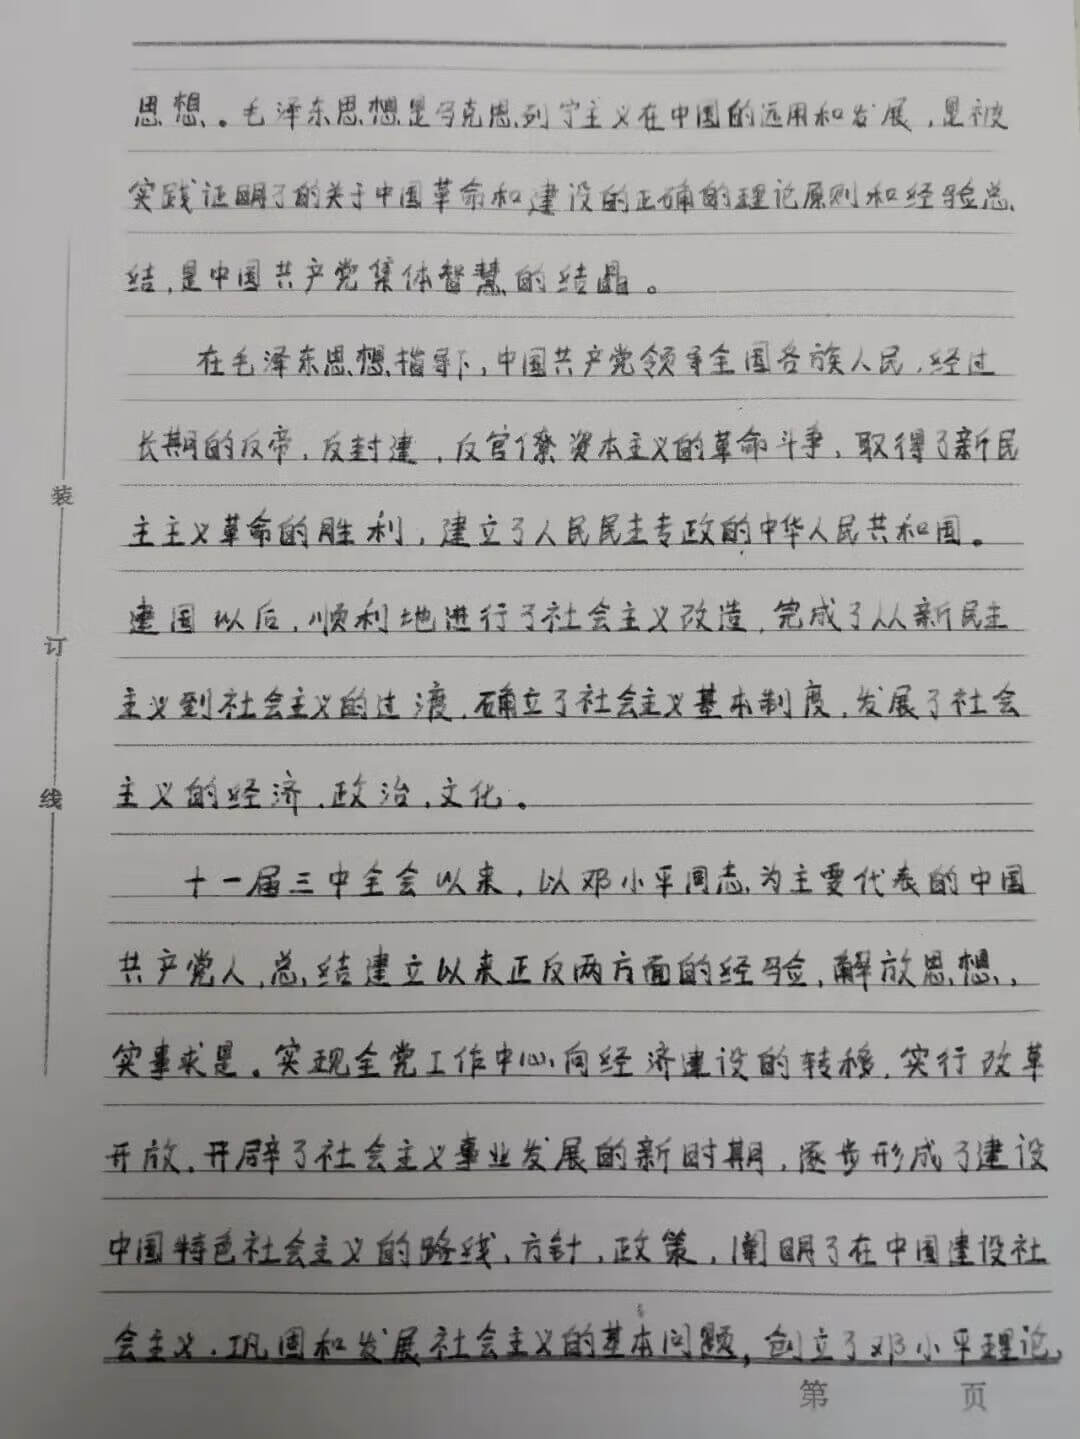 思想。毛泽东思想是马克思列宁主义在中国的运用和发展，是被
实践证明了的关于中国革命和建设的正确的理论原则和经验总
结，是中国共产党集体智慧的结晶。
在毛泽东思想指导下，中国共产党领导全国各族人民，经过
长期的反帝，反封建，反官僚资本主义的革命斗争，取得了新民
主主义革命的胜利，建立了人民民主专政的中华人民共和国。
建国以后，顺利地进行了社会主义改造，完成了从新民主
主义到社会主义的过渡，确立了社会主义基本制度，发展了社会
主义的经济，政治，文化。
十一届三中全会以来，以邓小平同志为主要代表的中国
共产党人，总结建立以来正反两方面的经验，解放思想，
实事求是。实现全党工作中心向经济建设的转移，实行改革
开放，开辟了社会主义事业发展的新时期，逐步形成了建设
中国特色社会主义的路线、方针，政策，阐明了在中国建设社
会主义，巩固和发展社会主义的基本问题，创立了邓小平理论，
装
订
线
第 页